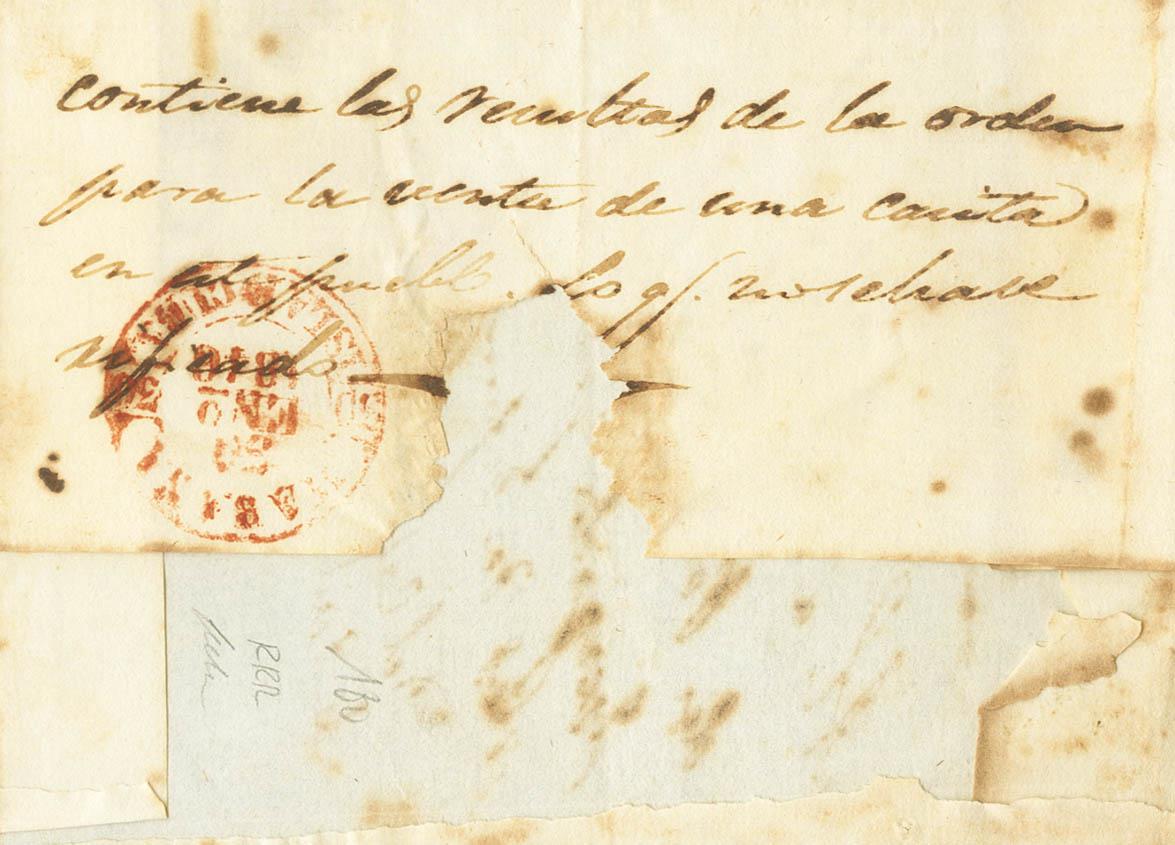 contiene las resultas de la orden
para la venta de una casita
en este pueblo. Lo qe. no se ha ve
rificado
RRR